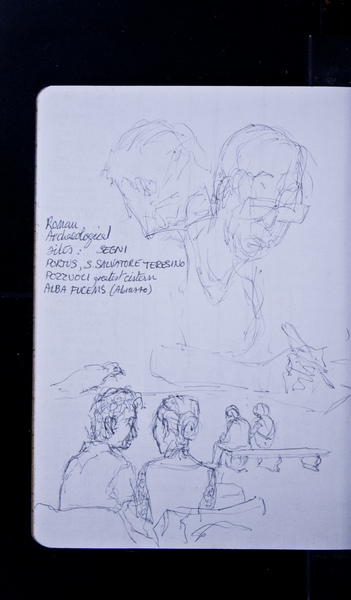 Roman
Archaeological
sites: SEGNI
PORTUS, S. SALVATORE TERESINO
POZZUOLI greatest cistern
ALBA FUCENS (Abruzzo)